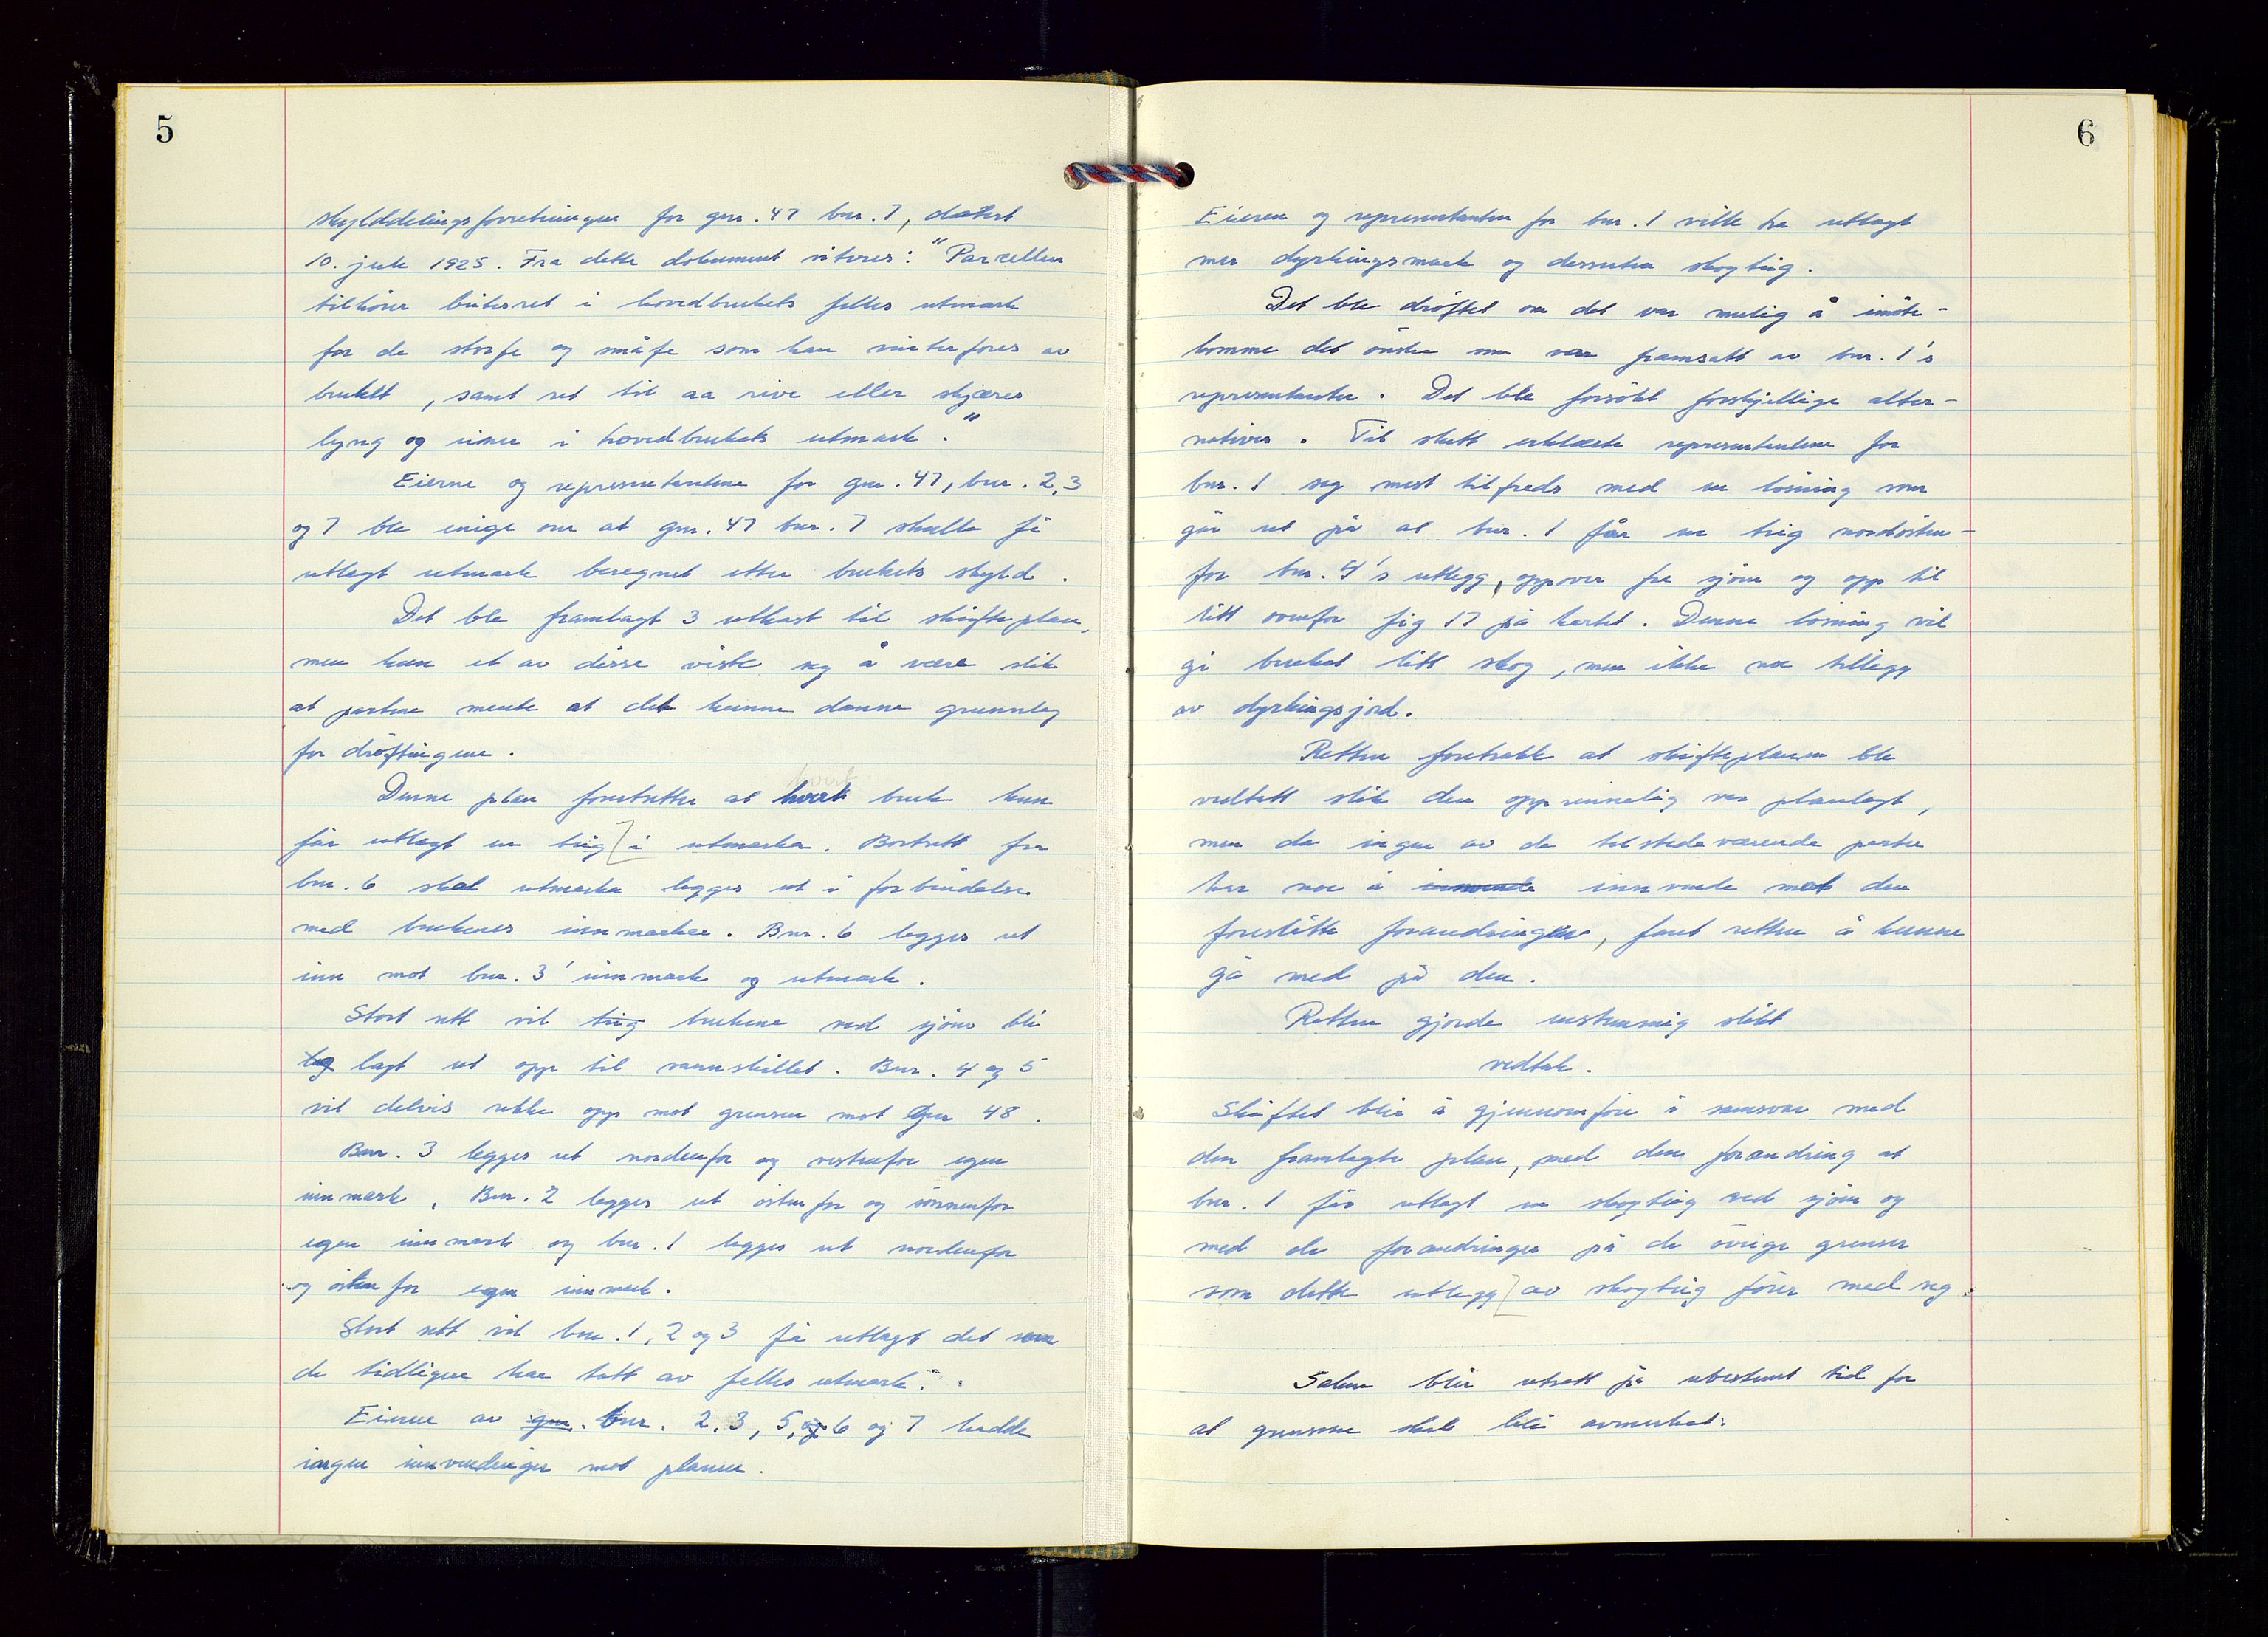 5
skylddelingsforretningen for gnr. 47 bnr. 7, datert
10. juli 1925. Fra dette dokument siteres: "Parcellen
tilhører beitesret i hovedbrukets felles utmark
for de storfe og småfe som kan vinterfores av
bruket, samt ret til aa rive eller skjære
lyng og einer i hovedbrukets utmark."
Eierne og representantene for gnr. 47, bnr. 2, 3
og 7 ble enige om at gnr. 47 bnr. 7 skulle få
utlagt utmark beregnet etter brukets skyld.
Det ble framlagt 3 utkast til skifteplan,
men kun et av disse viste seg å være slik
at partene mente at det kunne danne grunnlag
for drøftingene.
hvert
Denne plan forutsetter at hvert bruk kun
får utlagt en teig i utmarka. Bortsett fra
bnr. 6 skal utmarka legges ut i forbindelse
med brukenes innmarker. Bnr. 6 legges ut
inn mot bnr. 3' innmark og utmark.
Stort sett vil teig brukene ved sjøen bli
leg lagt ut opp til vannskillet. Bnr. 4 og 5
vil delvis rekke opp mot grensen mot Gnr 48.
Bnr. 3 legges ut nordenfor og vestenfor egen
innmark. Bnr. 2 legges ut østenfor og sønnenfor
egen innmark og bnr. 1 legges ut nordenfor
og østenfor egen innmark.
Stort sett vil bnr. 1, 2 og 3 få utlagt det som
de tidligere har tatt av felles utmark.
Eierne av gnr. bnr. 2, 3, 5, og 6 og 7 hadde
ingen innvendinger mot planen.
6
Eieren og representanten for bnr. 1 ville ha utlagt
mer dyrkingsmark og dessuten skogteig.
Det ble drøftet om det var mulig å imøte-
komme det ønske som var framsatt av bnr. 1's
representanter. Det ble forsøkt forskjellige alter-
nativer. Til slutt erklærte representantene for
bnr. 1 seg mest tilfreds med en løsning som
går ut på at bnr. 1 får en teig nordøsten-
for bnr. 4's utlegg, oppover fra sjøen og opp til
litt ovenfor fig 17 på kartet. Denne løsning vil
gi bruket litt skog, men ikke noe tillegg
av dyrkingsjord.
Retten foretrakk at skifteplanen ble
vedtatt slik den opprinnelig var planlagt,
men da ingen av de tilstedeværende parter
har noe å innvende innvende mot den
foreslåtte forandringen, fant retten å kunne
gå med på den.
Retten gjorde enstemmig slikt
vedtak.
Skiftet blir å gjennomføre i samsvar med
den framlagte plan, med den forandring at
bnr. 1 får utlagt en skogteig ved sjøen og
med de forandringer på de øvrige grenser
som dette utlegg av skogteig fører med seg.
Saken blir utsatt på ubestemt tid for
at grensene skal bli avmerket.